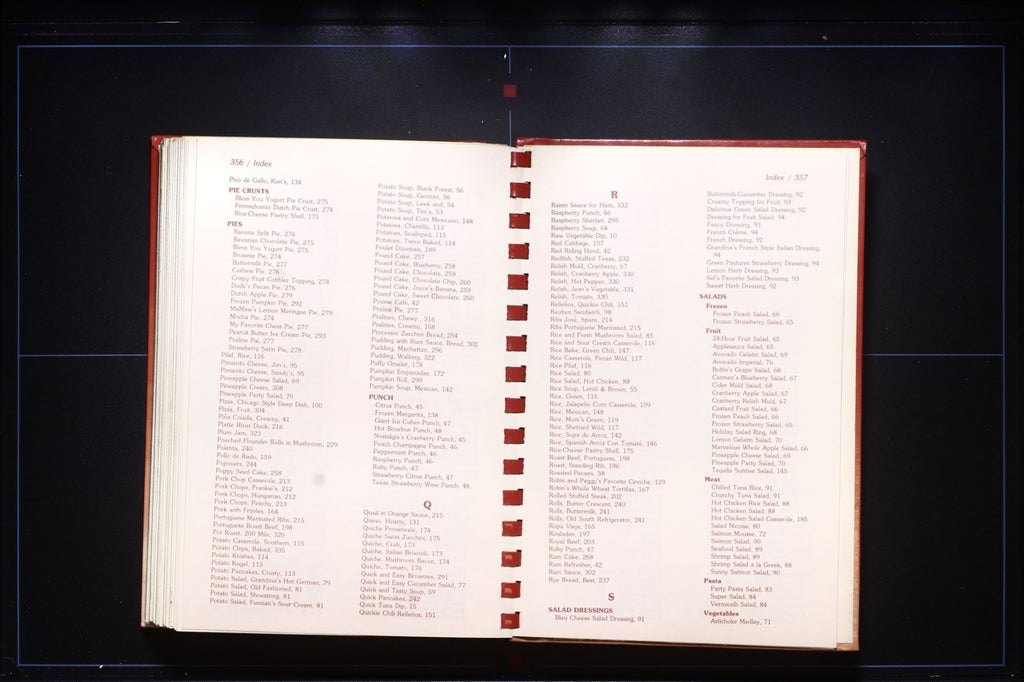 356 / Index
Pico de Gallo, Ken's, 134
PIE CRUSTS
Bless You Yogurt Pie Crust, 275
Pennsylvania Dutch Pie Crust, 274
Rice-Cheese Pastry Shell, 175
PIES
Banana Split Pie, 276
Bavarian Chocolate Pie, 275
Bless You Yogurt Pie, 275
Brownie Pie, 274
Buttermilk Pie, 277
Cashew Pie, 276
Crispy Fruit Cobbler Topping, 278
Dude's Pecan Pie, 276
Dutch Apple Pie, 279
Frozen Pumpkin Pie, 292
MaMaw's Lemon Meringue Pie, 279
Mocha Pie, 274
My Favorite Chess Pie, 277
Peanut Butter Ice Cream Pie, 293
Praline Pie, 277
Strawberry Satin Pie, 278
Pilaf, Rice, 116
Pimiento Cheese, Jim's, 95
Pimiento Cheese, Sandy's, 95
Pineapple Cheese Salad, 69
Pineapple Cream, 308
Pineapple Party Salad, 70
Pizza, Chicago Style Deep Dish, 100
Pizza, Fruit, 304
Piña Colada, Creamy, 41
Platte River Duck, 216
Plum Jam, 323
Poached Flounder Rolls in Mushroom, 229
Polenta, 240
Pollo de Rado, 159
Popovers, 244
Poppy Seed Cake, 258
Pork Chop Casserole, 213
Pork Chops, Frankie's, 212
Pork Chops, Hungarian, 212
Pork Chops, Peachy, 213
Pork with Frijoles, 164
Portuguese Marinated Ribs, 215
Portuguese Roast Beef, 198
Pot Roast, 200 Mile, 320
Potato Casserole, Southern, 115
Potato Chips, Baked, 335
Potato Knishes, 114
Potato Kugel, 115
Potato Pancakes, Crusty, 113
Potato Salad, Grandma's Hot German, 79
Potato Salad, Old-Fashioned, 81
Potato Salad, Shoestring, 81
Potato Salad, Furman's Sour Cream, 81
Potato Soup, Black Forest, 56
Potato Soup, German, 56
Potato Soup, Leek and, 54
Potato Soup, Tim's, 53
Potatoes and Corn Mexicano, 148
Potatoes, Chantilly, 113
Potatoes, Scalloped, 115
Potatoes, Twice Baked, 114
Poulet Dijonnais, 189
Pound Cake, 257
Pound Cake, Blueberry, 258
Pound Cake, Chocolate, 259
Pound Cake, Chocolate Chip, 260
Pound Cake, Joyce's Banana, 259
Pound Cake, Sweet Chocolate, 260
Pousse Café, 42
Praline Pie, 277
Pralines, Chewy, 316
Pralines, Creamy, 168
Processor Zucchini Bread, 254
Pudding with Rum Sauce, Bread, 302
Pudding, Manhattan, 296
Pudding, Walking, 322
Puffy Omelet, 178
Pumpkin Empanadas, 172
Pumpkin Roll, 299
Pumpkin Soup, Mexican, 142
PUNCH
Citrus Punch, 45
Frozen Margarita, 138
Giant Ice Cubes Punch, 47
Hot Bourbon Punch, 48
Nostalgia's Cranberry Punch, 45
Peach Champagne Punch, 46
Peppermint Punch, 46
Raspberry Punch, 46
Ruby Punch, 47
Strawberry Citrus Punch, 47
Texas Strawberry Wine Punch, 48
Q
Quail in Orange Sauce, 215
Queso, Hearty, 131
Quiche Provencale, 174
Quiche Sans Zucchini, 175
Quiche, Crab, 173
Quiche, Italian Broccoli, 173
Quiche, Mushroom Bacon, 174
Quiche, Tomato, 176
Quick and Easy Brownies, 291
Quick and Easy Cucumber Salad, 77
Quick and Tasty Soup, 59
Quick Pancakes, 242
Quick Tuna Dip, 15
Quickie Chili Relleños, 151
Index / 357
R
Raisin Sauce for Ham, 332
Raspberry Punch, 46
Raspberry Sherbet, 295
Raspberry Soup, 64
Raw Vegetable Dip, 10
Red Cabbage, 107
Red Riding Hood, 42
Redfish, Stuffed Texas, 232
Relish Mold, Cranberry, 67
Relish, Cranberry Apple, 330
Relish, Hot Pepper, 330
Relish, Jean's Vegetable, 331
Relish, Tomato, 330
Relleños, Quickie Chili, 151
Reuben Sandwich, 98
Ribs José, Spare, 214
Ribs Portuguese Marinated, 215
Rice and Fresh Mushroom Salad, 85
Rice and Sour Cream Casserole, 116
Rice Bake, Green Chili, 147
Rice Casserole, Pecan Wild, 117
Rice Pilaf, 116
Rice Salad, 80
Rice Salad, Hot Chicken, 88
Rice Soup, Lentil & Brown, 55
Rice, Green, 116
Rice, Jalapeño Corn Casserole, 109
Rice, Mexican, 148
Rice, Mum's Green, 119
Rice, Sherried Wild, 117
Rice, Sopa de Arroz, 142
Rice, Spanish Arroz Con Tomate, 146
Rice-Cheese Pastry Shell, 175
Roast Beef, Portuguese, 198
Roast, Standing Rib, 196
Roasted Pecans, 38
Robin and Peggy's Favorite Ceviche, 129
Robin's Whole Wheat Tortillas, 167
Rolled Stuffed Steak, 202
Rolls, Butter Crescent, 240
Rolls, Buttermilk, 241
Rolls, Old South Refrigerator, 241
Ropa Vieja, 165
Rouladen, 197
Royal Beef, 203
Ruby Punch, 47
Rum Cake, 268
Rum Refresher, 42
Rum Sauce, 302
Rye Bread, Best, 237
S
SALAD DRESSINGS
Bleu Cheese Salad Dressing, 91
Buttermilk-Cucumber Dressing, 92
Creamy Topping for Fruit, 93
Delicious Green Salad Dressing, 92
Dressing for Fruit Salad, 94
Fancy Dressing, 93
French Crème, 94
French Dressing, 92
Grandma's French Style Italian Dressing,
94
Green Pastures Strawberry Dressing, 94
Lemon Herb Dressing, 93
Sid's Favorite Salad Dressing, 93
Sweet Herb Dressing, 92
SALADS
Frozen
Frozen Peach Salad, 66
Frozen Strawberry Salad, 65
Fruit
24-Hour Fruit Salad, 65
Applesauce Salad, 65
Avocado Gelatin Salad, 69
Avocado Imperial, 76
Bobbi's Grape Salad, 68
Carmen's Blueberry Salad, 67
Cider Mold Salad, 68
Cranberry Apple Salad, 67
Cranberry Relish Mold, 67
Custard Fruit Salad, 66
Frozen Peach Salad, 66
Frozen Strawberry Salad, 65
Holiday Salad Ring, 68
Lemon Gelatin Salad, 70
Marvelous Whole Apple Salad, 66
Pineapple Cheese Salad, 69
Pineapple Party Salad, 70
Tequila Sunrise Salad, 145
Meat
Chilled Tuna Rice, 91
Crunchy Tuna Salad, 91
Hot Chicken Rice Salad, 88
Hot Chicken Salad, 88
Hot Chicken Salad Casserole, 185
Salad Nicoise, 80
Salmon Mousse, 72
Salmon Salad, 90
Seafood Salad, 89
Shrimp Salad, 89
Shrimp Salad a la Greek, 88
Sunny Salmon Salad, 90
Pasta
Party Pasta Salad, 83
Super Salad, 84
Vermicelli Salad, 84
Vegetables
Artichoke Medley, 71